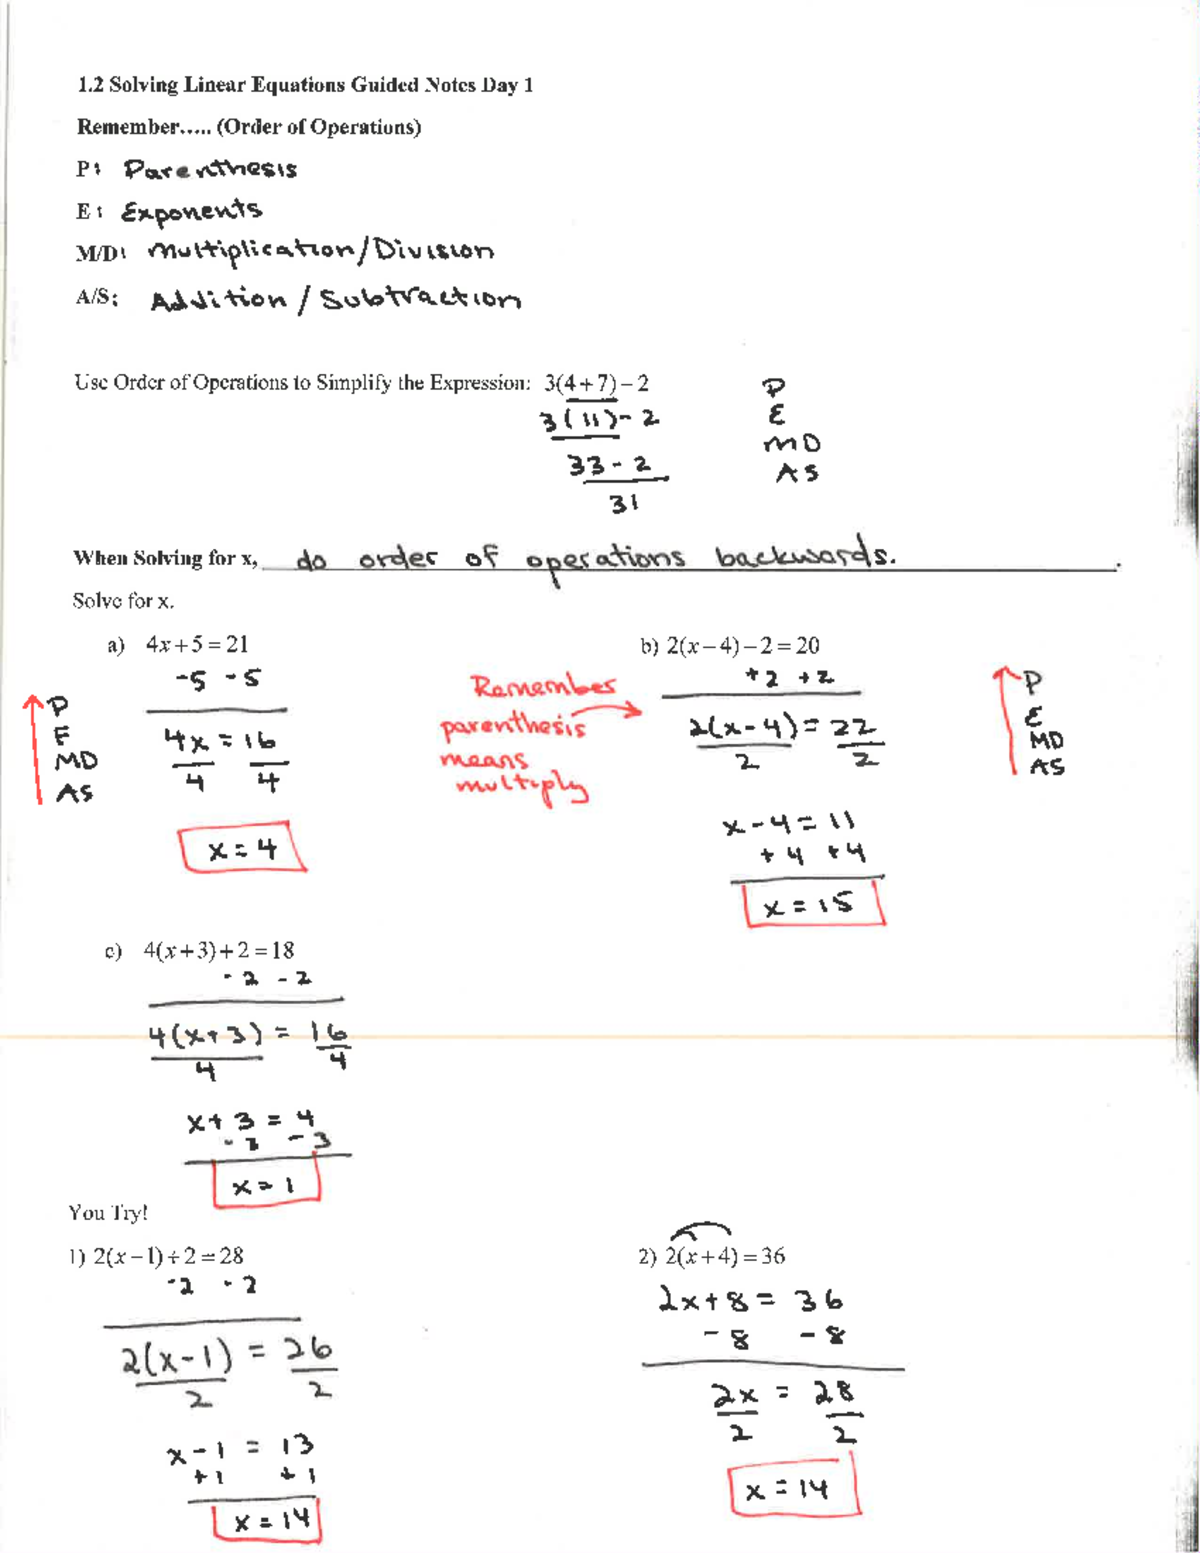 1.2 Solving Linear Equations Guided Notes Day 1
Remember..... (Order of Operations)
P: Parenthesis
E: Exponents
M/D: Multiplication/Division
A/S: Addition / Subtraction
Use Order of Operations to Simplify the Expression: 3(4+7)–2
3(11)-2
33-2
31
P
E
MD
AS
When Solving for x, do order of operations backwards.
Solve for x.
a) 4x+5=21
-5 -5
4x = 16
4 4
x = 4
P
E
MD
AS
b) 2(x–4)–2=20
+2 +2
2(x-4) = 22
2 2
x-4 = 11
+4 +4
x = 15
Remember
parenthesis
means
multiply
P
E
MD
AS
c) 4(x+3)+2=18
-2 -2
4(x+3) = 16
4 4
x+3 = 4
-3 -3
x = 1
You Try!
1) 2(x–1)+2=28
-2 -2
2(x-1) = 26
2 2
x-1 = 13
+1 +1
x = 14
2) 2(x+4)=36
2x+8 = 36
-8 -8
2x = 28
2 2
x = 14